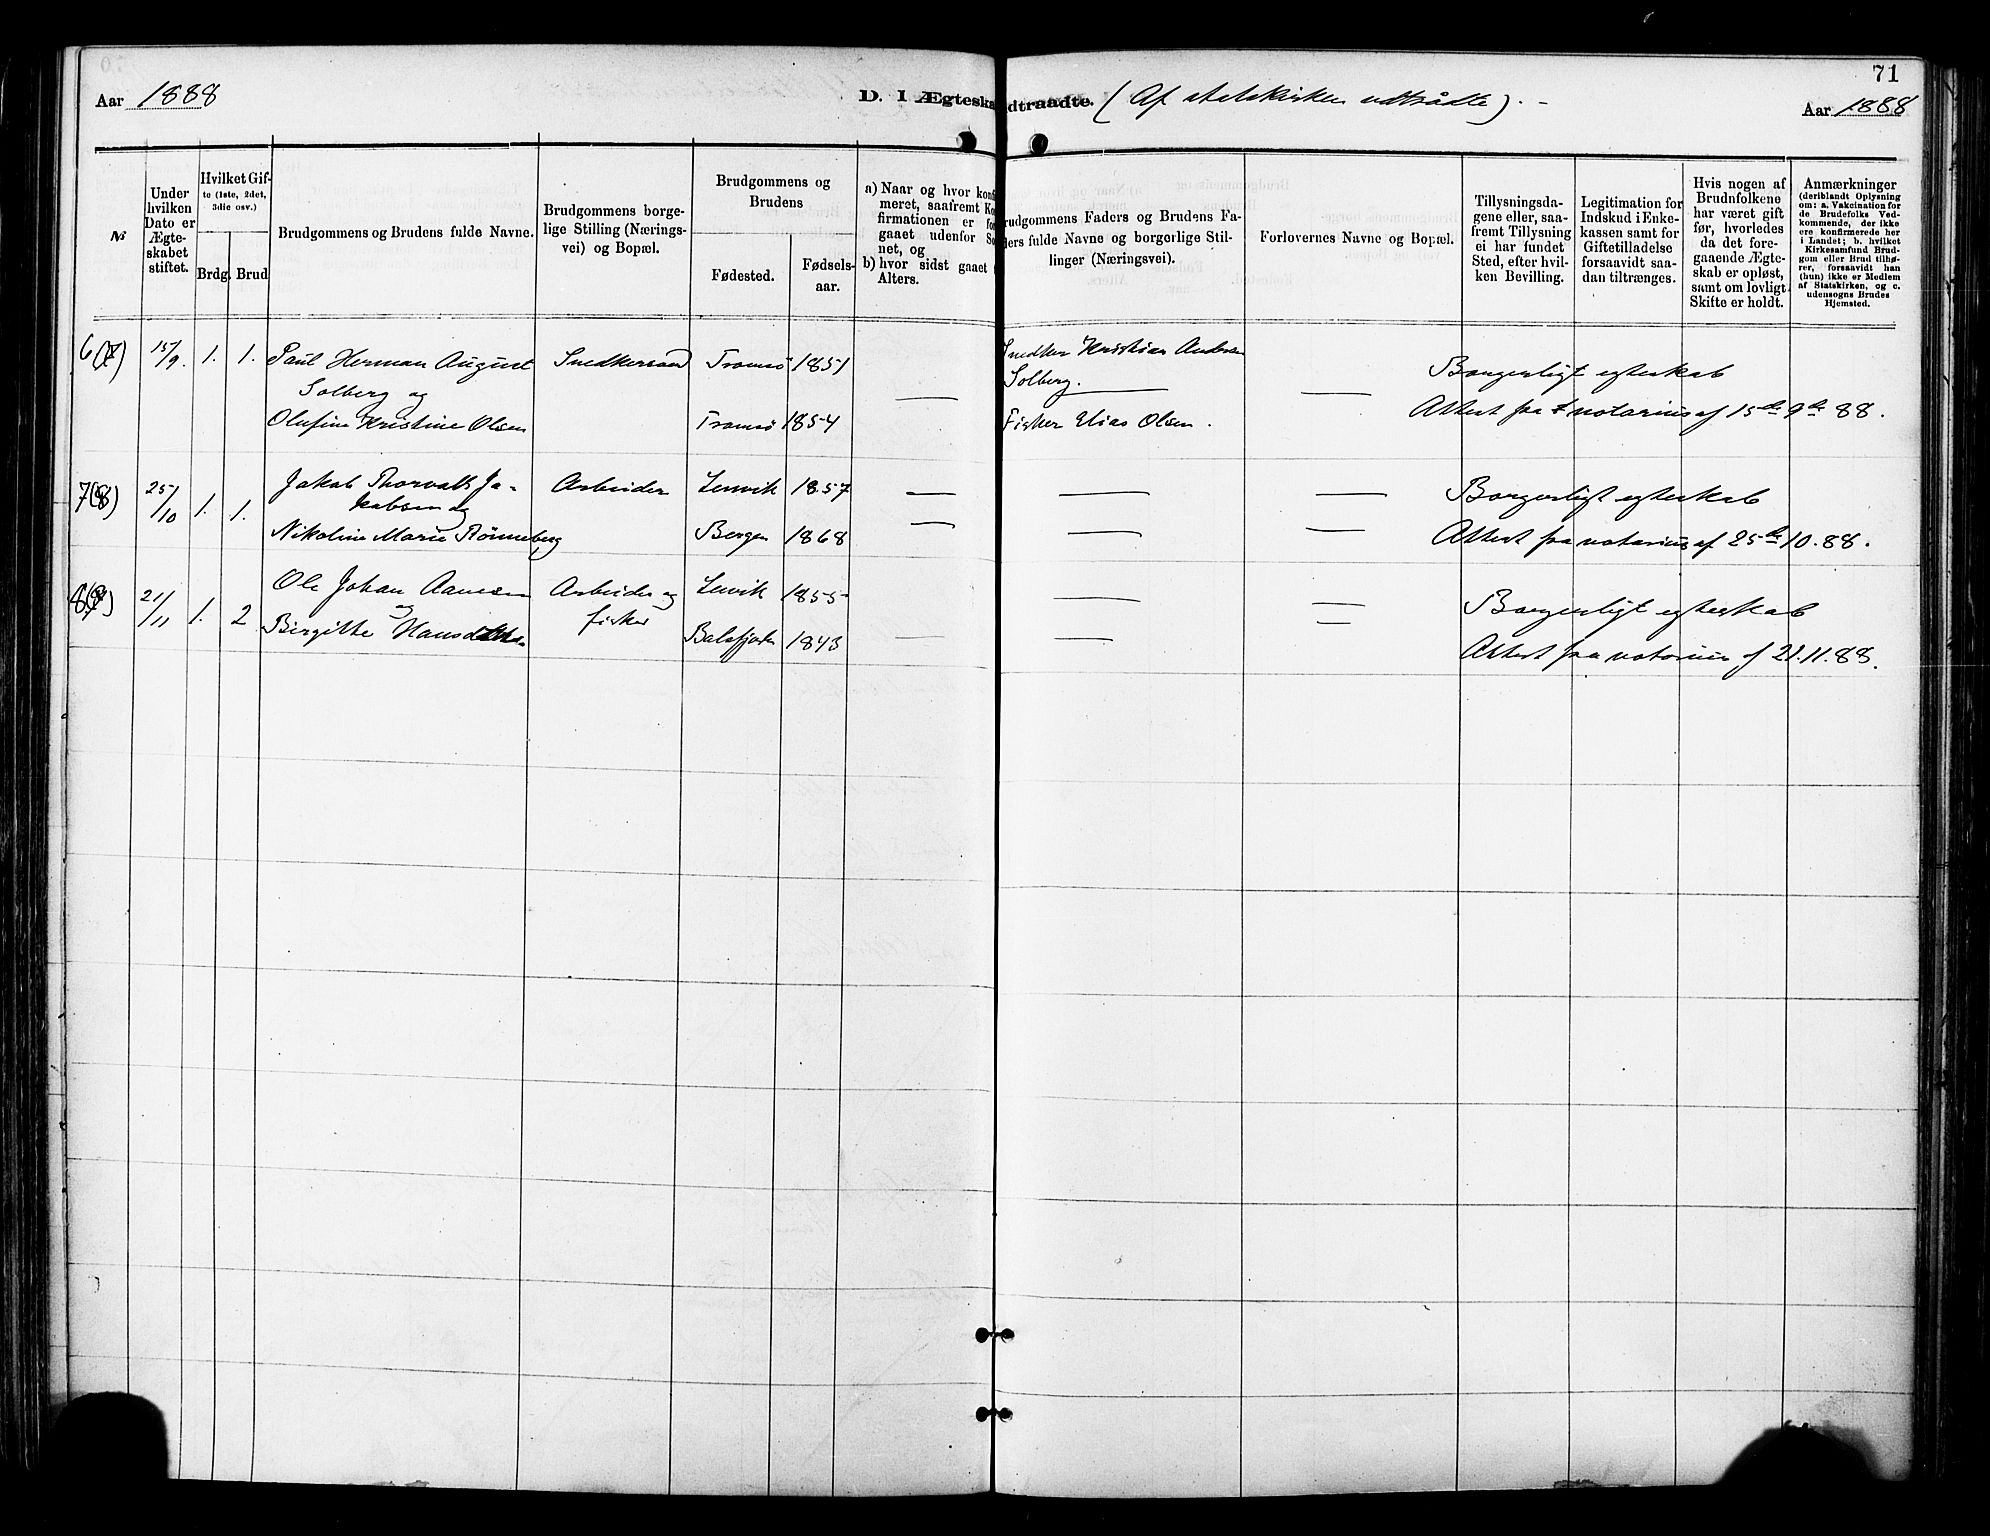 71
Aar 1888
D. I Ægteska
dtraadte. (Af statskirken udtrådte). -
Aar 1888
№
Under hvilken Dato er Ægteskabet stiftet.
Hvilket Gifte (1ste, 2det, 3die osv.)
Brdg.
Brud
Brudgommens og Brudens fulde Navne.
Brudgommens borgelige Stilling (Næringsvei) og Bopæl.
Brudgommens og Brudens
Fødested.
Fødselsaar.
a) Naar og hvor konf
meret, saafremt Ko
firmationen er for
gaaet udenfor So
net, og
b) hvor sidst gaaet t
Alters.
rudgommens Faders og Brudens Fa-
ders fulde Navne og borgerlige Stil-
linger (Næringsvei).
Forlovernes Navne og Bopæl.
Tillysningsda-
gene eller, saa-
fremt Tillysning
ei har fundet
Sted, efter hvil-
ken Bevilling.
Legitimation for
Indskud i Enke-
kassen samt for
Giftetilladelse
forsaavidt saa-
dan tiltrænges.
Hvis nogen af
Brudnfolkene
har været gift
før, hvorledes
da det fore-
gaaende Ægte-
skab er opløst,
samt om lovligt
Skifte er holdt.
Anmærkninger
(deriblandt Oplysning
om: a. Vakcination for
de Brudefolks Ved-
kommende, der ikke
ere konfirmerede her
i Landet; b. hvilket
Kirkesamfund Brud-
gom eller Brud tilhø-
rer, forsaavidt han
(hun) ikke er Medlem
af Statskirken, og c.
udensogns Brudes
Hjemsted.
6 (7) 15/9. 1. 1. Paul Herman August Snedkersvend Tromsø 1851 Snedker Kristian Andersen
Solberg og Solberg. Borgerligt egteskab
Olufine Kristine Olsen Tromsø 1854 Fisker Elias Olsen. Attest fra notarius af 15de 9de 88.
7(8) 25/10 1. 1. Jakob Thorvald Ja- Arbeider Lenvik 1857 Borgerligt egteskab
kobsen og
Nikoline Marie Rønneberg Bergen 1868 Attest fra notarius af 25de 10. 88.
8(9) 21/11 1. 2 Ole Johan Aanesen Arbeider og Lenvik 1855 Borgerligt egteskab
og fisker
Birgitte Hansdatter Balsfjorden 1843 Attest fra notarius af 21.11.88.